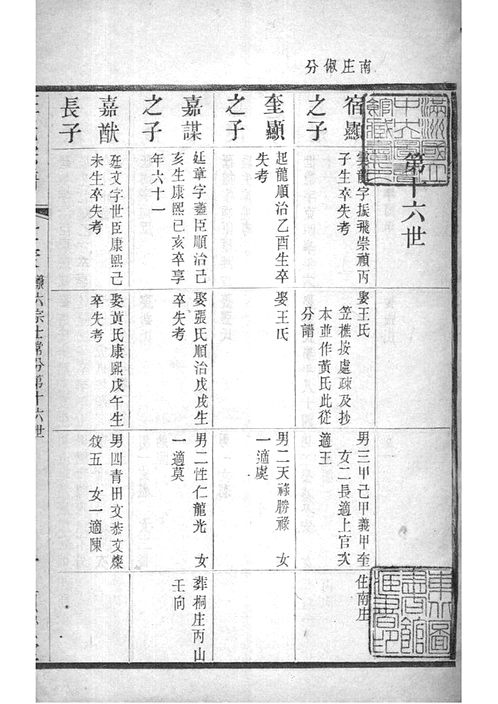 南庄俶分
第十六世
宿顯之子
雲龍字振飛崇禎丙子生卒失考
娶王氏
笠樵按處疎及抄本並作黃氏此從分譜
男三甲己甲義甲奎
女二長適上官次適王
住南庄
奎顯之子
起龍順治乙酉生卒失考
娶王氏
男二天祿勝祿 女一適虞
嘉謀之子
廷章字藎臣順治己亥生康熙己亥卒享年六十一
娶張氏順治戊戌生卒失考
男二性仁龍光 女一適莫
葬桐庄丙山壬向
嘉猷長子
廷文字世臣康熙己未生卒失考
娶黃氏康熙戊午生卒失考
男四青田文恭文燦
五 女一適陳
第十六世
滿洲國立中央圖書館藏書之
東北圖書館